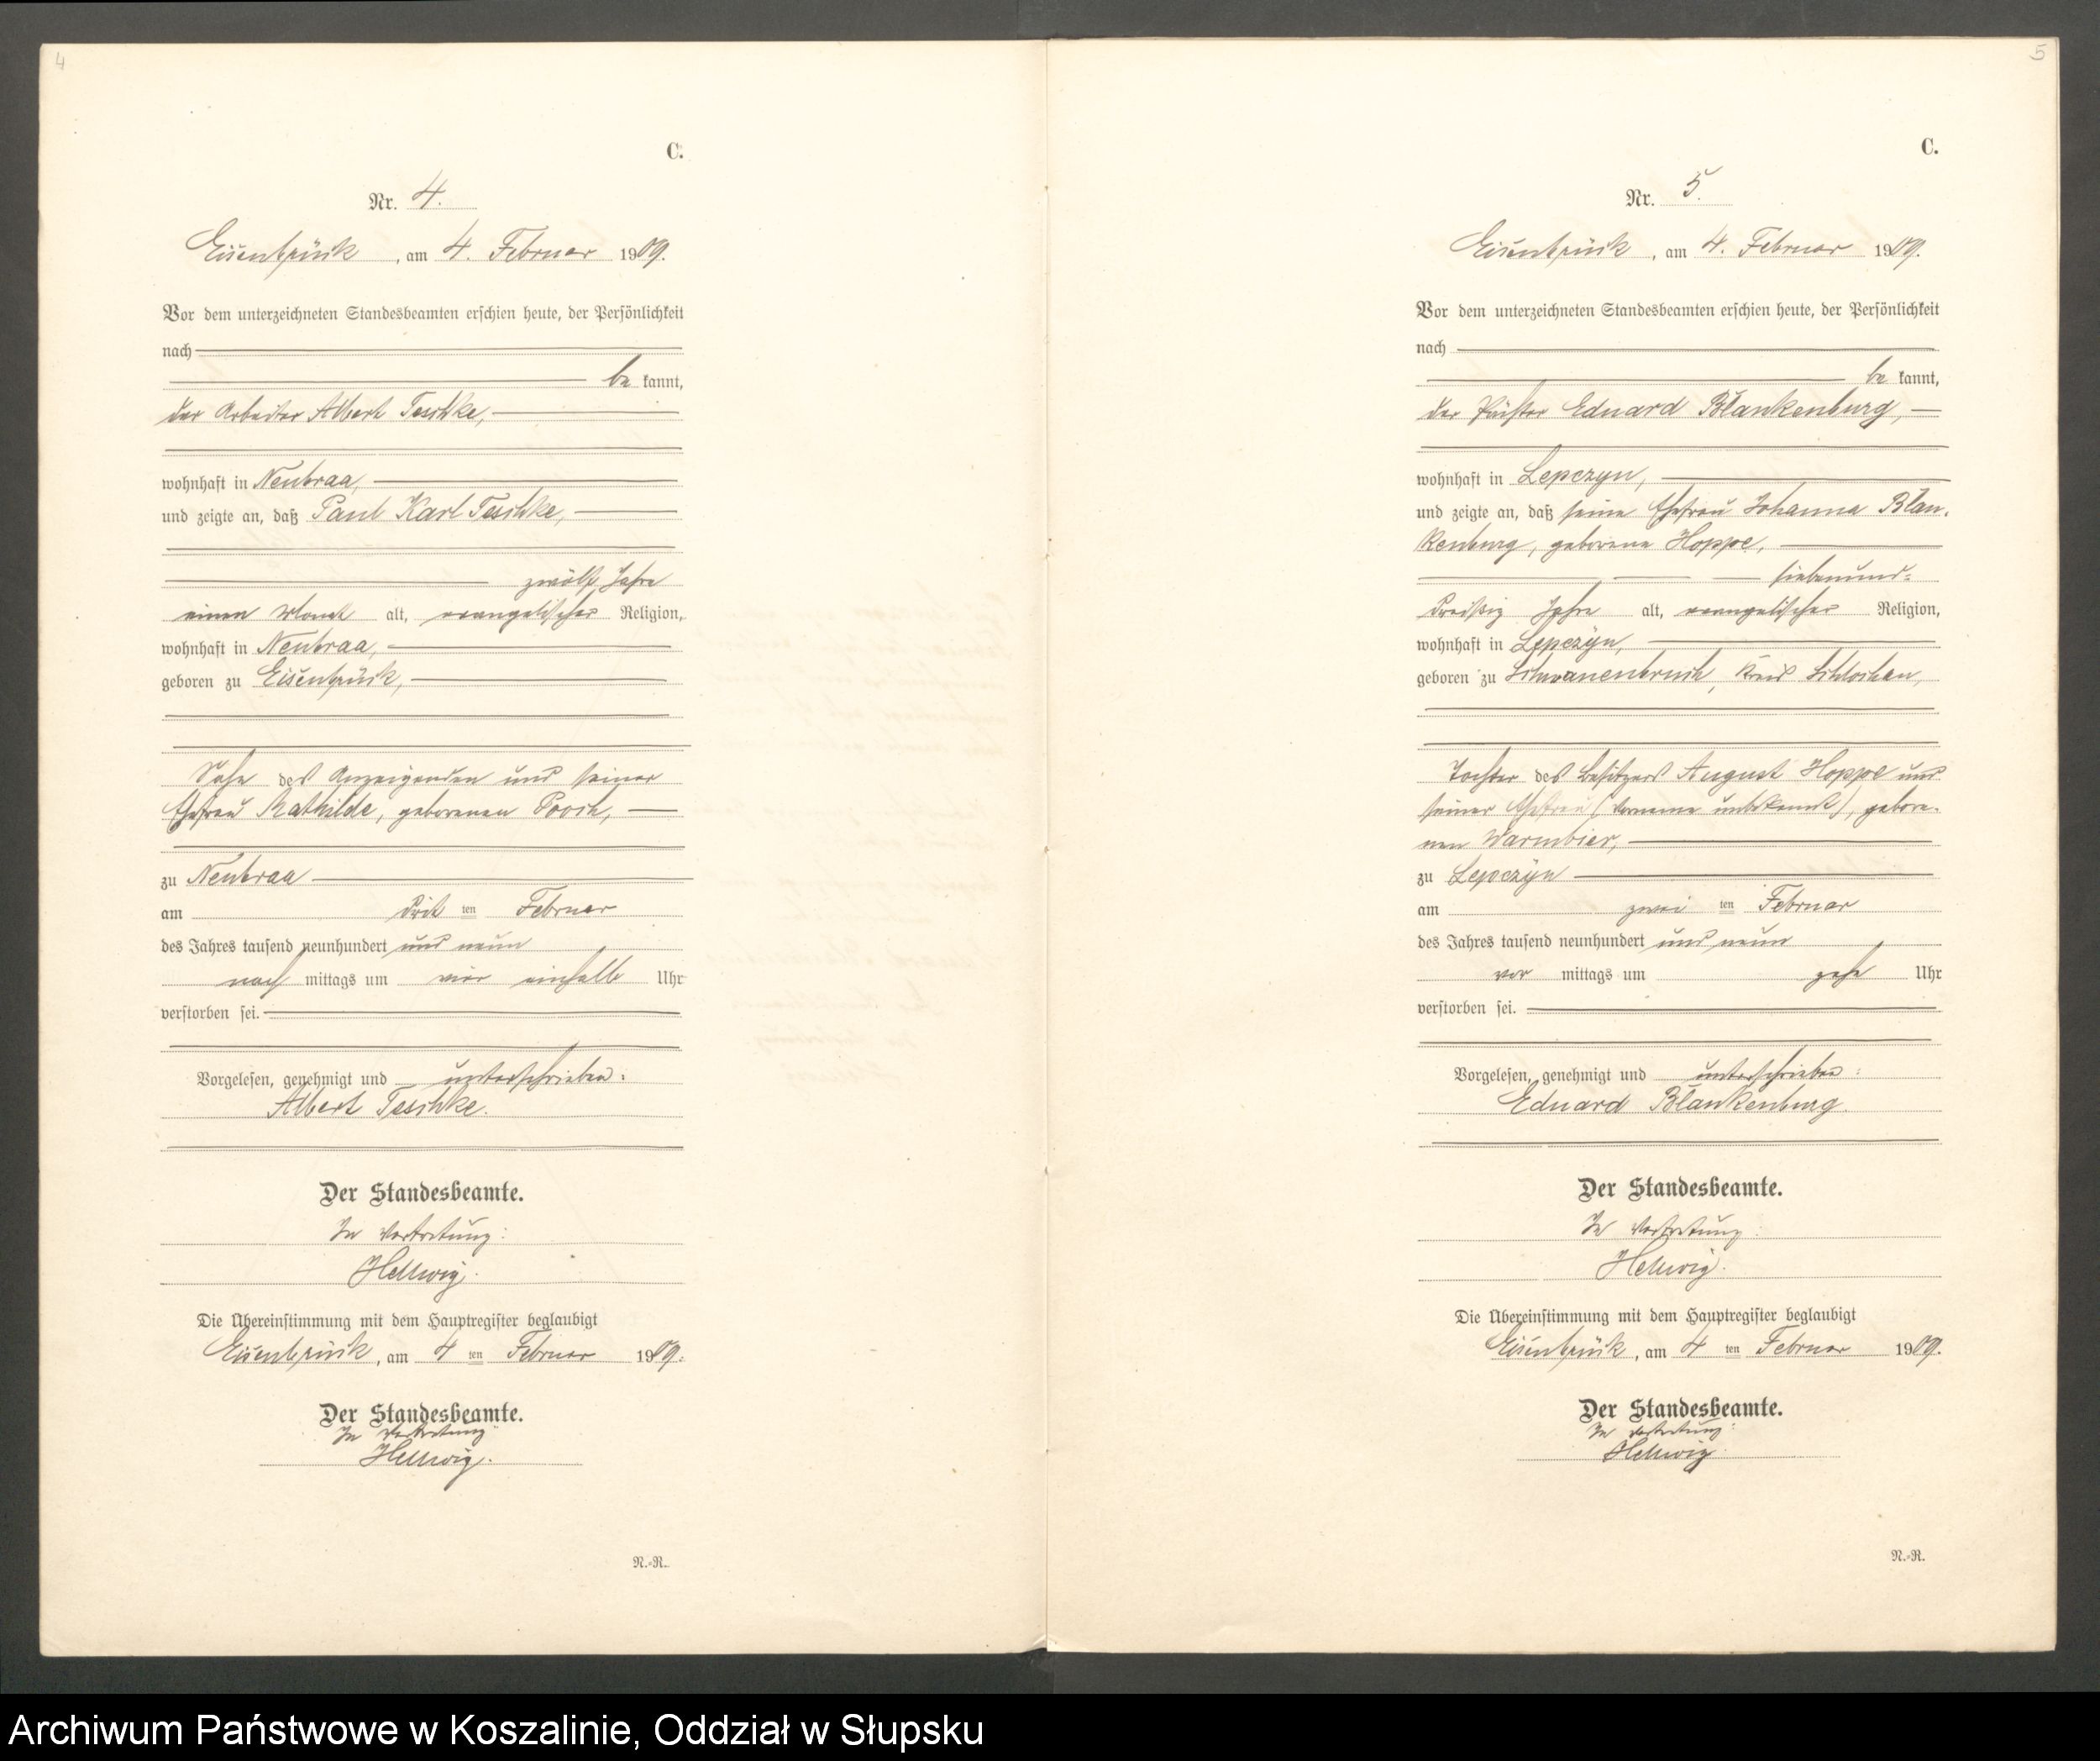 4
C.
Nr. 4.
Eisenbrück, am 4. Februar 1909.
Vor dem unterzeichneten Standesbeamten erschien heute, der Persönlichkeit
nach
be kannt,
der Arbeiter Albert Teschke,
wohnhaft in Neubraa,
und zeigte an, daß Paul Karl Teschke,
zwölf Jahre
einen Monat alt, evangelischer Religion,
wohnhaft in Neubraa,
geboren zu Eisenbrück,
Sohn des Anzeigenden und seiner
Ehefrau Mathilde, geborenen Poosch,
zu Neubraa
am dritten Februar
des Jahres tausend neunhundert und neun
nach mittags um vier einhalb Uhr
verstorben sei.
Vorgelesen, genehmigt und unterschrieben:
Albert Teschke.
Der Standesbeamte.
In Vertretung:
Hellwig.
Die Übereinstimmung mit dem Hauptregister beglaubigt
Eisenbrück, am 4ten Februar 1909.
Der Standesbeamte.
In Vertretung
Hellwig.
N.-R.
5
C.
Nr. 5.
Eisenbrück, am 4. Februar 1909.
Vor dem unterzeichneten Standesbeamten erschien heute, der Persönlichkeit
nach
be kannt,
der Eduard Blankenburg,
wohnhaft in Lepczyn,
und zeigte an, daß seine Ehefrau Johanna Blan-
kenburg, geborene Hoppe,
siebenund-
dreißig Jahre alt, evangelischer Religion,
wohnhaft in Lepczyn,
geboren zu Schwanenbruch, Kreis Schlochau,
Tochter des Besitzers August Hoppe und
seiner Ehefrau (Vorname unbekannt), gebore-
nen Warmbier,
zu Lepczyn
am zweiten Februar
des Jahres tausend neunhundert und neun
vor mittags um zehn Uhr
verstorben sei.
Vorgelesen, genehmigt und unterschrieben:
Eduard Blankenburg
Der Standesbeamte.
In Vertretung:
Hellwig.
Die Übereinstimmung mit dem Hauptregister beglaubigt
Eisenbrück, am 4ten Februar 1909.
Der Standesbeamte.
In Vertretung:
Hellwig.
N.-R.
Archiwum Państwowe w Koszalinie, Oddział w Słupsku